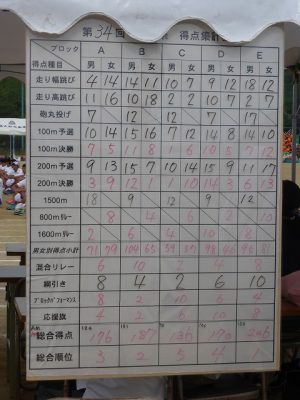 第34回 得点集計
ブロック A B C D E
得点種目 男 女 男 女 男 女 男 女 男 女
走り幅跳び 4 14 14 11 10 7 9 12 18 12
走り高跳び 11 16 10 18 2 2 10 7 2 7
砲丸投げ 7 12 12 7 17
100m予選 10 14 15 16 7 12 14 8 14 10
100m決勝 7 5 11 8 6 10 5 7 12
200m予選 9 13 15 7 10 14 15 9 11 17
200m決勝 3 9 12 10 14 3 6 13
1500m 18 9 12 9 12
800mリレー 8 4 6 2 10
1600mリレー 2 6 4 10 8
男女別得点小計 71 79 104 65 59 98
混合リレー 6 10 2 4 8
綱引き 8 4 2 6 10
ブロックパフォーマンス 8 2 10 6 4
応援旗 4 2 8
総合得点 176 187 136 170
総合順位 3 2 5 4 1